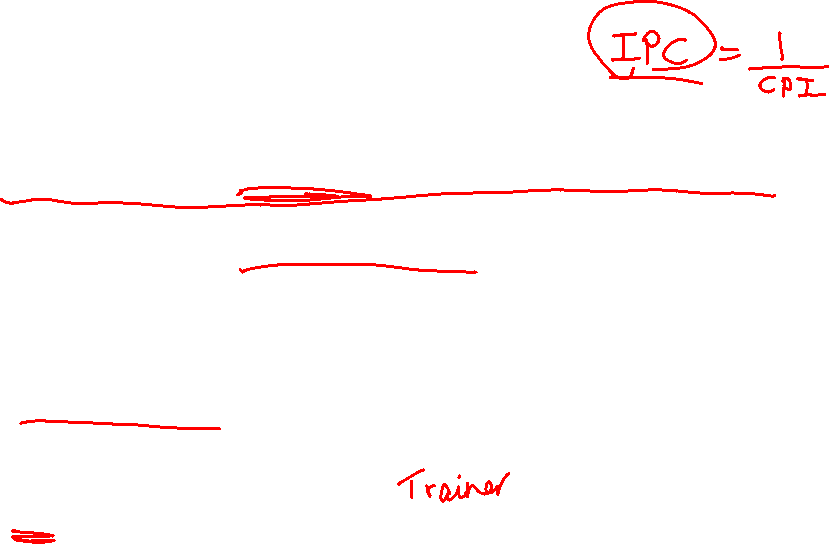 IPC = 1/CPI
Trainer